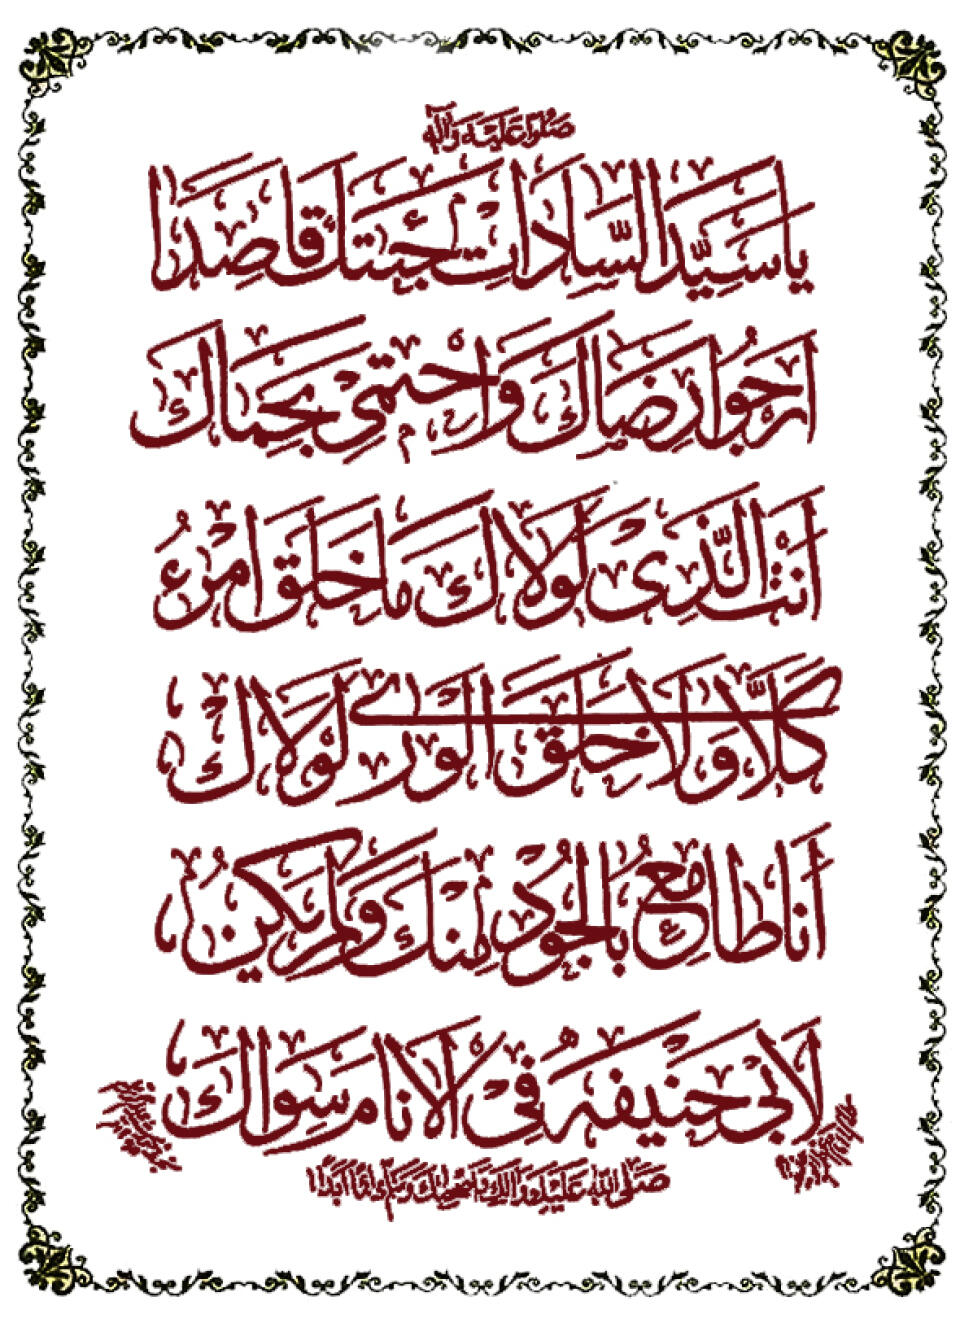 صلوا عليه وآله
يا سَيِّدَ السَّادَاتِ جِئْتُكَ قَاصِدًا
اَرْجُو رِضَاكَ وَاحْتَمِىْ بِحِمَاكَ
اَنْتَ الَّذِىْ لَوْلَاكَ مَا خُلِقَ امْرُءٌ
كَلَّا وَلَا خُلِقَ الْوَرٰى لَوْلَاكَ
اَنَا طَامِعٌ بِالْجُوْدِ مِنْكَ وَلَمْ يَكُنْ
لِاَبِىْ حَنِيْفَةَ فِى الْاَنَامِ سِوَاكَ
صَلَّى اللهُ عَلَيْكَ وَآلِكَ اَبَدًا